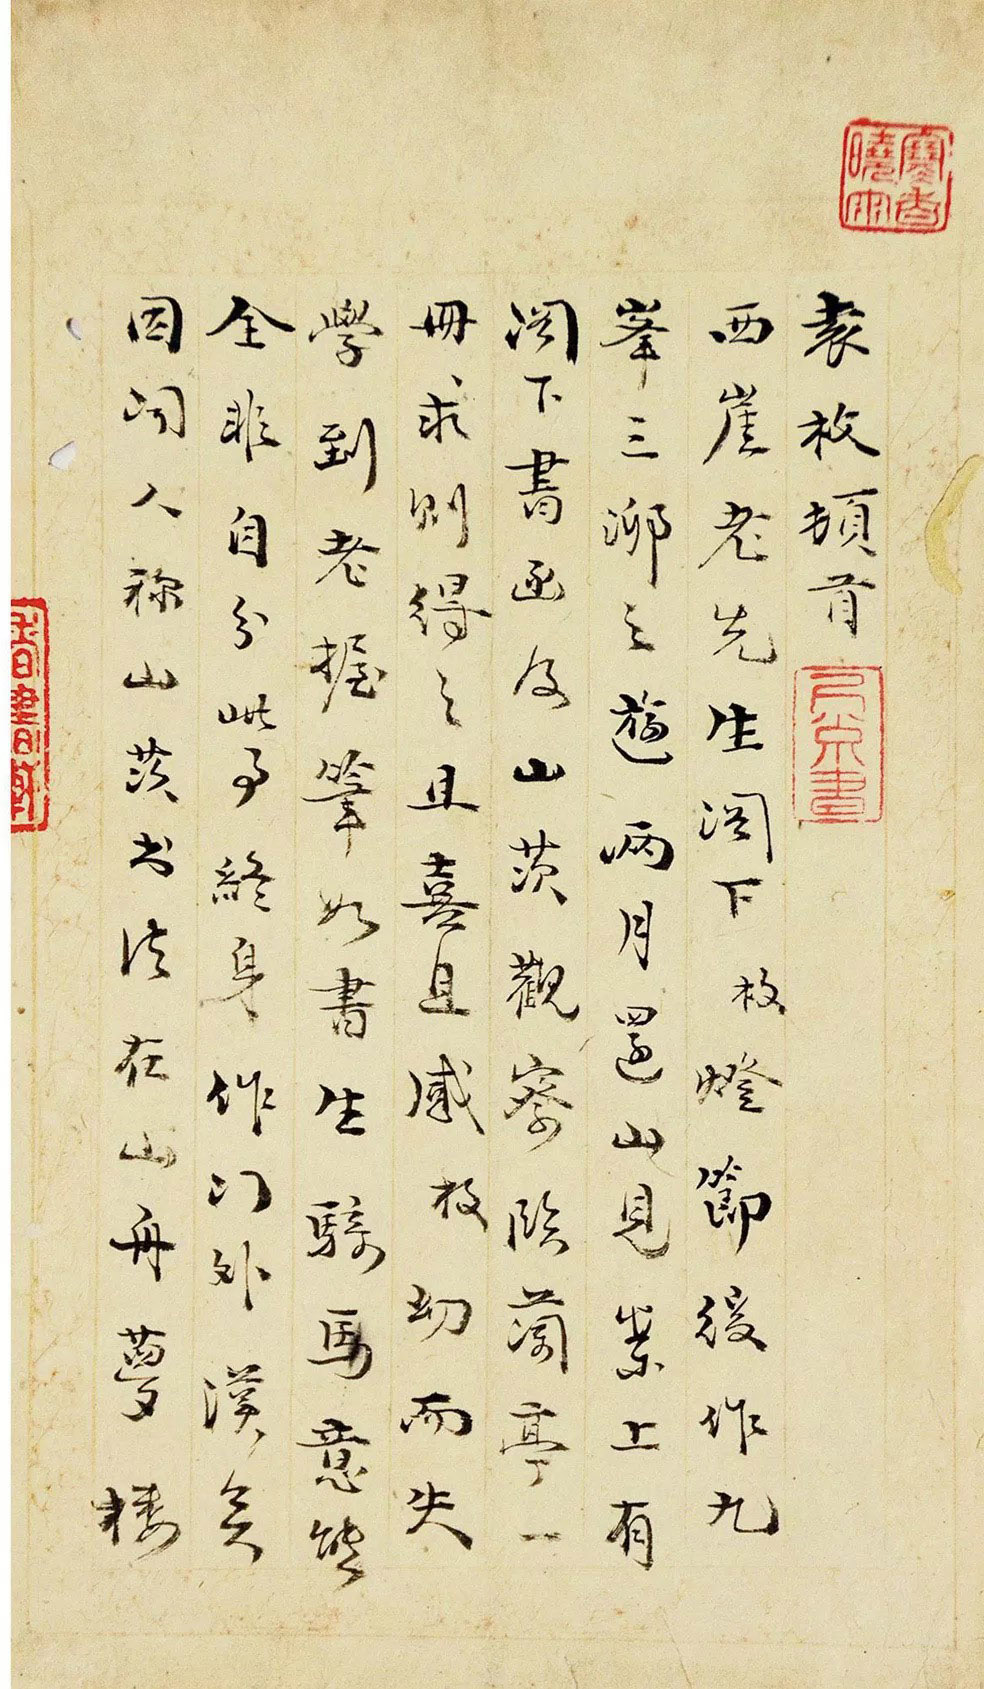 袁枚頓首
西崖老先生閣下枚燈節後作九
峯三泖之遊兩月還山見案上有
閣下書函及山茨觀察臨蘭亭一
冊求則得之且喜且感枚幼而失
學到老握筆如書生騎馬意態
全非自分此事終身作门外漢矣
因问人称山茨书法在山舟夢樓
寒香
曉雨